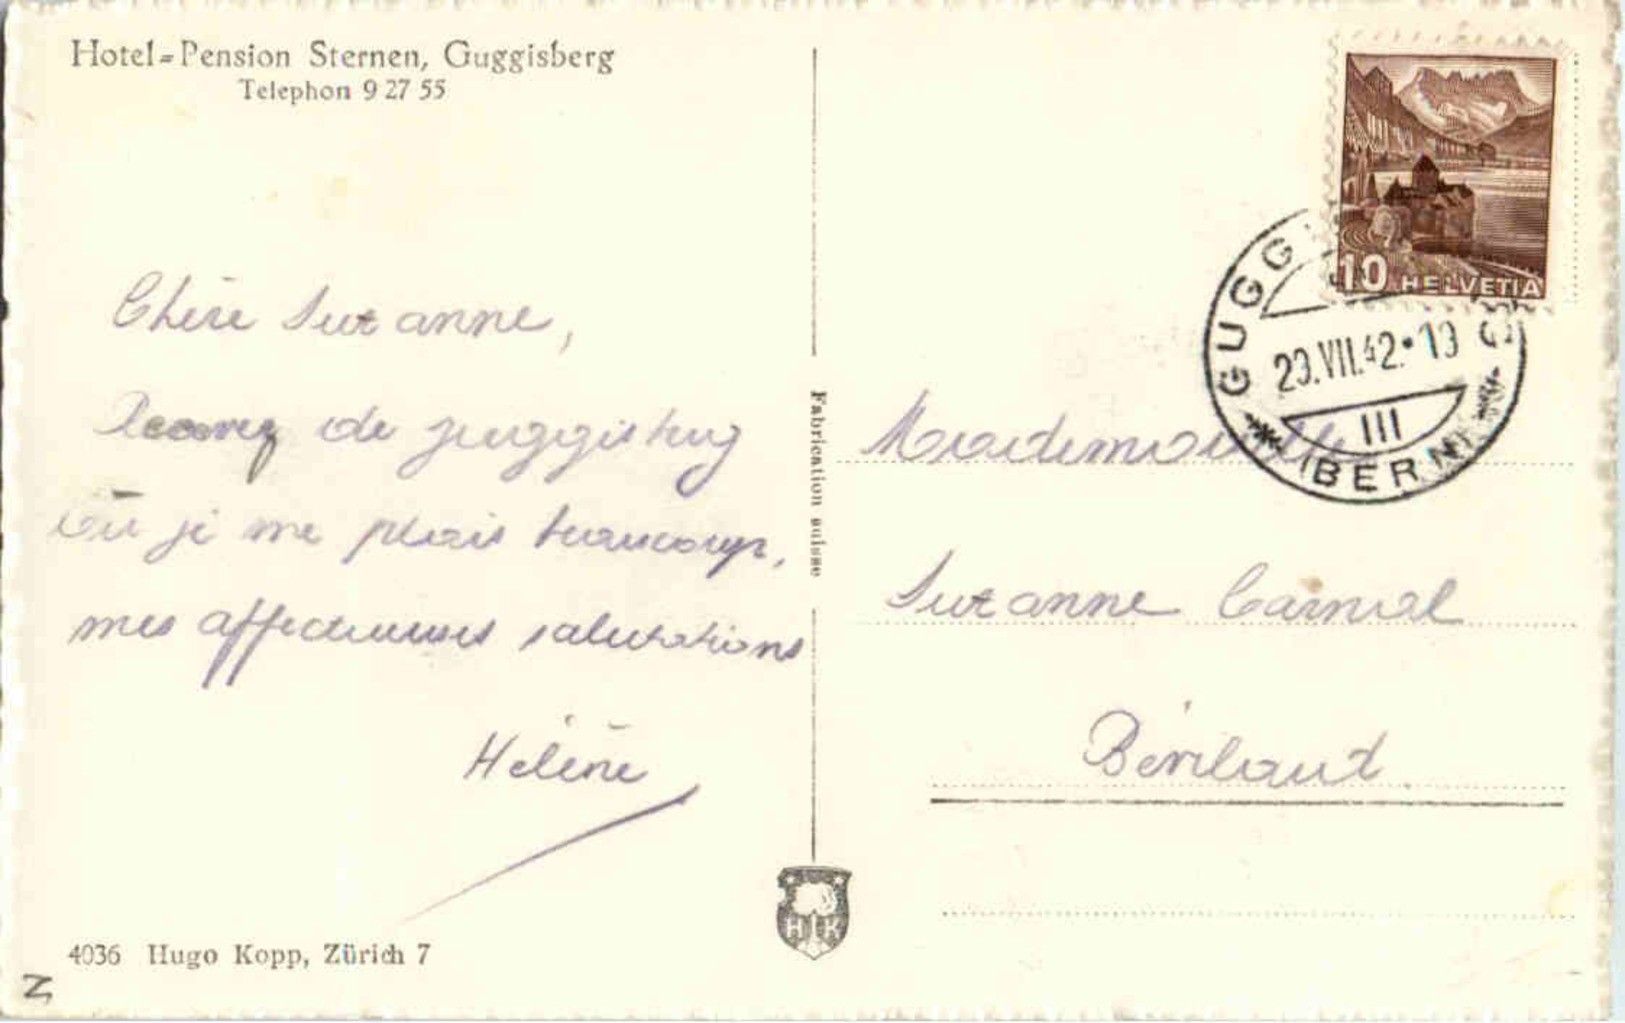 Hotel-Pension Sternen, Guggisberg
Telephon 9 27 55
10 HELVETIA
GUGG
29.VII.42.-19
III
(BERN)
Chère Suzanne,
Recevez de Guggisberg
où je me plais beaucoup,
mes affectueuses salutations
Hélène
Fabrication suisse
Mademoiselle
Suzanne Carnal
Bévilard
HK
4036 Hugo Kopp, Zürich 7